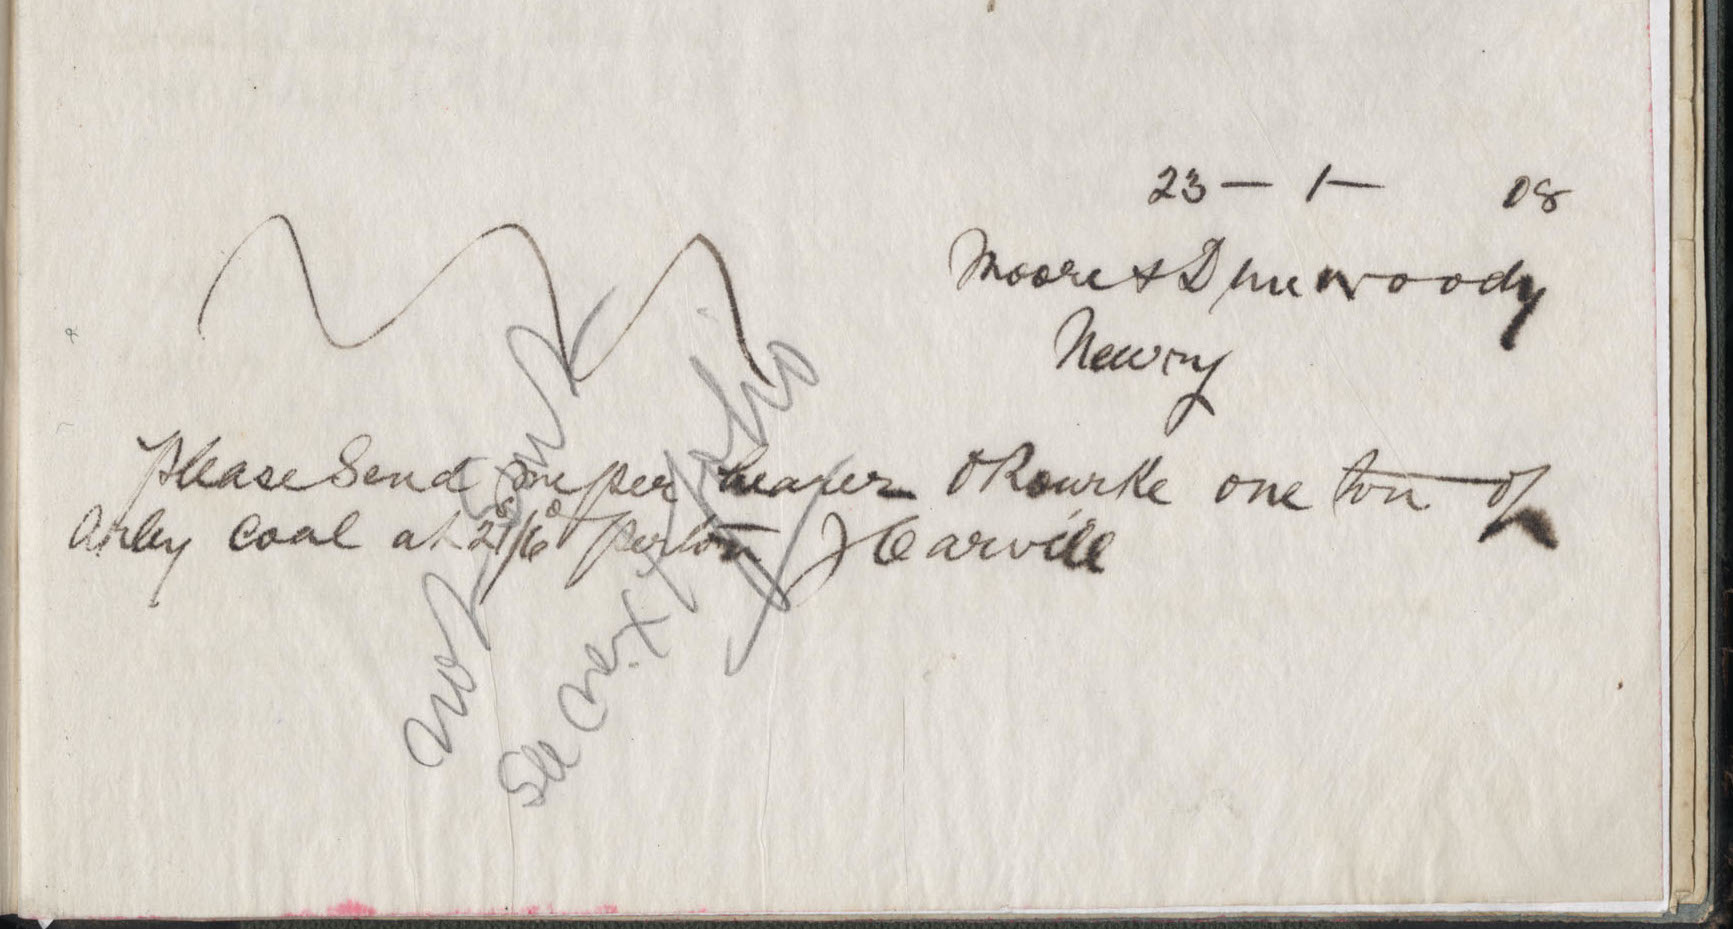 23 – 1 – 08
Moore & Dinwoody
Newry
Please Send me per bearer O Rourke one ton of
Arley Coal at 21/6 per ton J Carvill
not sent
See next folio